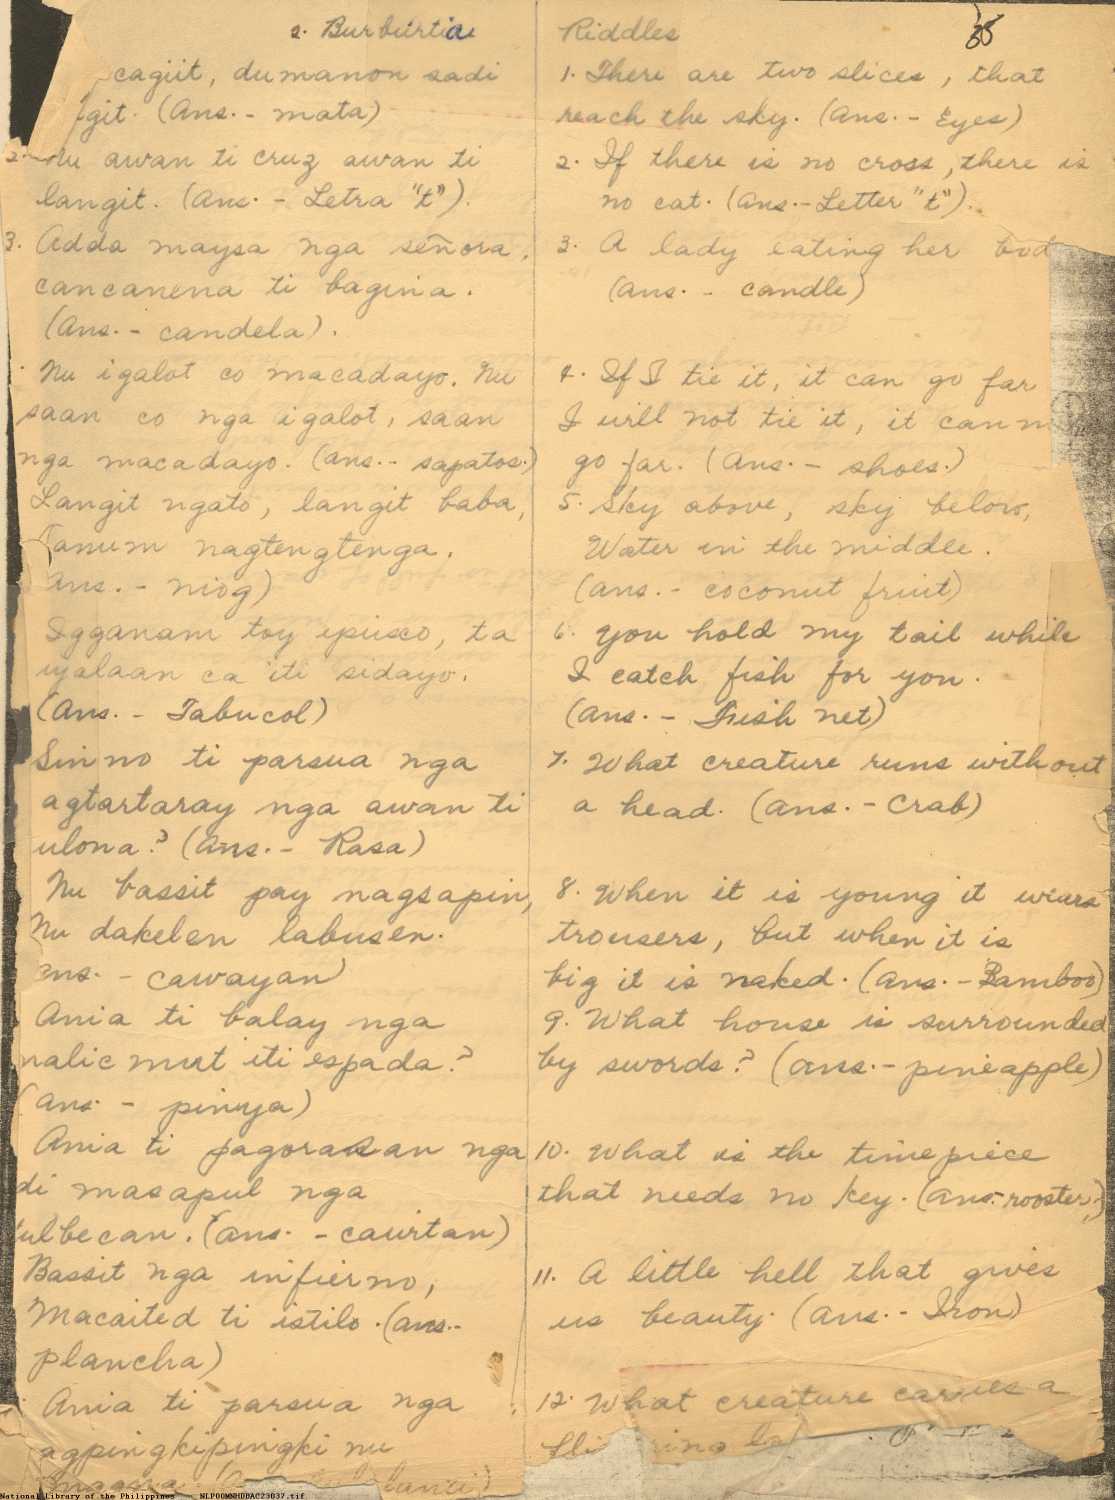 2. Burburtia
cagiit, dumanon sadi
git. (Ans. - mata)
2. Nu awan ti cruz awan ti
langit. (Ans. - Letra "t").
3. Adda maysa nga señora,
cancanena ti bagina.
(Ans. - candela).
Nu igalot co macadayo. Nu
saan co nga igalot, saan
nga macadayo. (Ans. - sapatos.)
Langit ngato, langit baba,
anum nagtengtenga.
Ans. - niog)
Igganam toy ipusco, ta
iyalaan ca iti sidayo.
(Ans. - Tabucol)
Sinno ti parsua nga
agtartaray nga awan ti
ulona? (Ans. - Rasa)
Nu bassit pay nagsapin,
Nu dakelen labusen.
Ans. - cawayan)
Ania ti balay nga
nalicmut iti espada?
(Ans - pinya)
Ania ti pagorasan nga
di masapul nga
tulbecan. (Ans. - cawitan)
Bassit nga infierno,
Macaited ti istilo. (Ans. -
plancha)
Ania ti parsua nga
agpingkipingki nu
Riddles
35
1. There are two slices, that
reach the sky. (Ans. - Eyes)
2. If there is no cross, there is
no cat. (Ans. - Letter "t").
3. A lady eating her bod
(Ans. - candle)
4. If I tie it, it can go far
I will not tie it, it can n
go far. (Ans. - shoes.)
5. Sky above, sky below,
Water in the middle.
(Ans. - coconut fruit)
6. You hold my tail while
I catch fish for you.
(Ans. - Fish net)
7. What creature runs without
a head. (Ans. - Crab)
8. When it is young it wears
trousers, but when it is
big it is naked. (Ans. - Bamboo)
9. What house is surrounded
by swords? (Ans. - pineapple)
10. What is the timepiece
that needs no key. (Ans. - rooster.)
11. A little hell that gives
us beauty. (Ans. - Iron)
12. What creature carries a
National Library of the Philippines NLP00MNHDBAC23037.tif